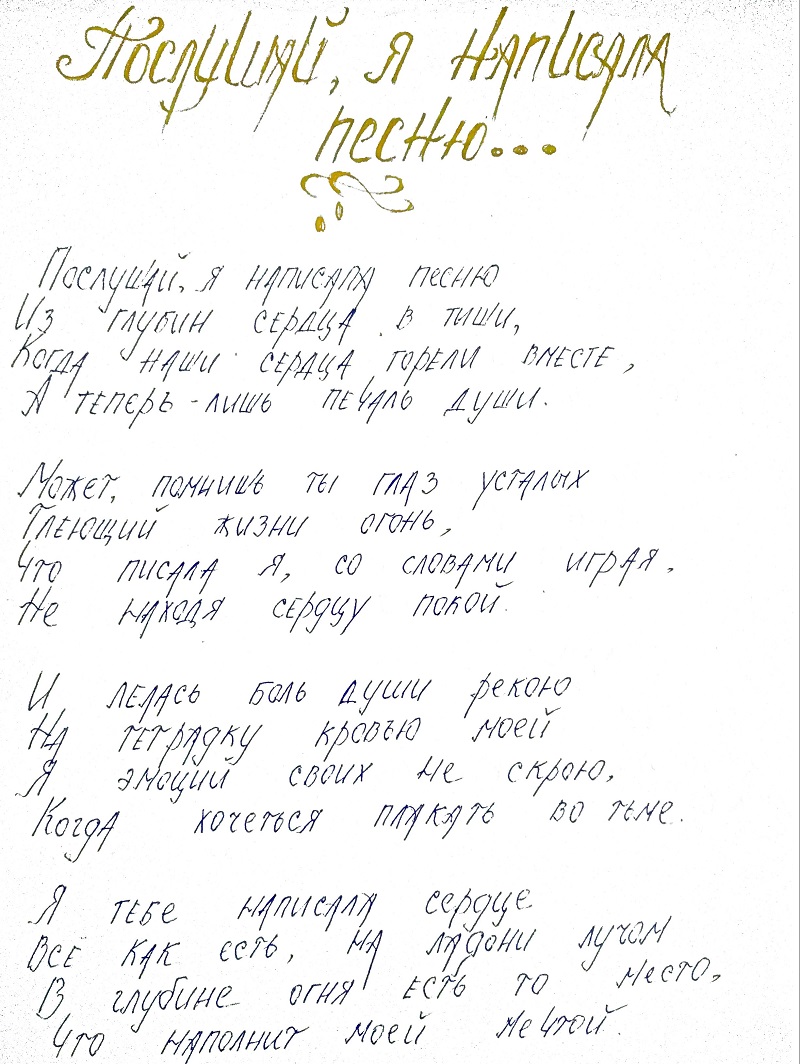 Послушай, я написала
песню...
Послушай, я написала песню
Из глубин сердца в тиши,
Когда наши сердца горели вместе,
А теперь - лишь печаль души.
Может, помнишь ты глаз усталых
Тлеющий жизни огонь,
Что писала я, со словами играя,
Не находя сердцу покой.
И лелась боль души рекою
На тетрадку кровью моей
Я эмоций своих не скрою,
Когда хочеться плакать во тьме.
Я тебе написала сердце
Все как есть, на ладони лучом
В глубине огня есть то место,
Что наполнит моей мечтой.